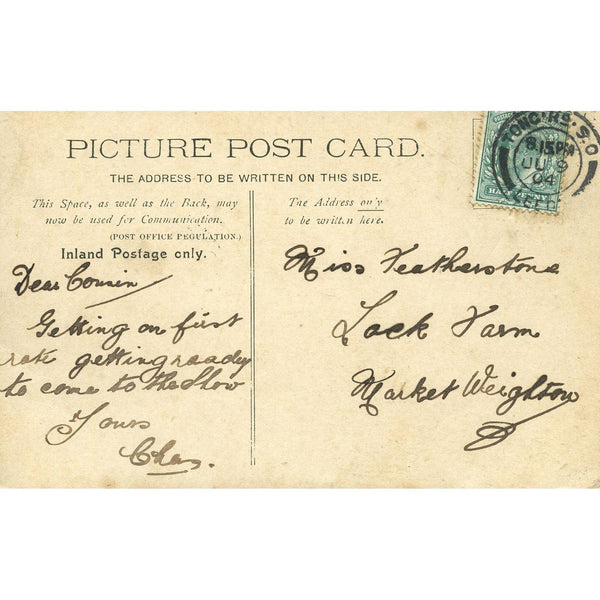 PICTURE POST CARD.
THE ADDRESS TO BE WRITTEN ON THIS SIDE.
This Space, as well as the Back, may
now be used for Communication.
(POST OFFICE REGULATION.)
Inland Postage only.
The Address only
to be written here.
Dear Cousin
Getting on first
rate getting ready
to come to the Show
Yours
Chas.
Miss Featherstone
Lock Farm
Market Weighton
8.15PM
JU 9
04